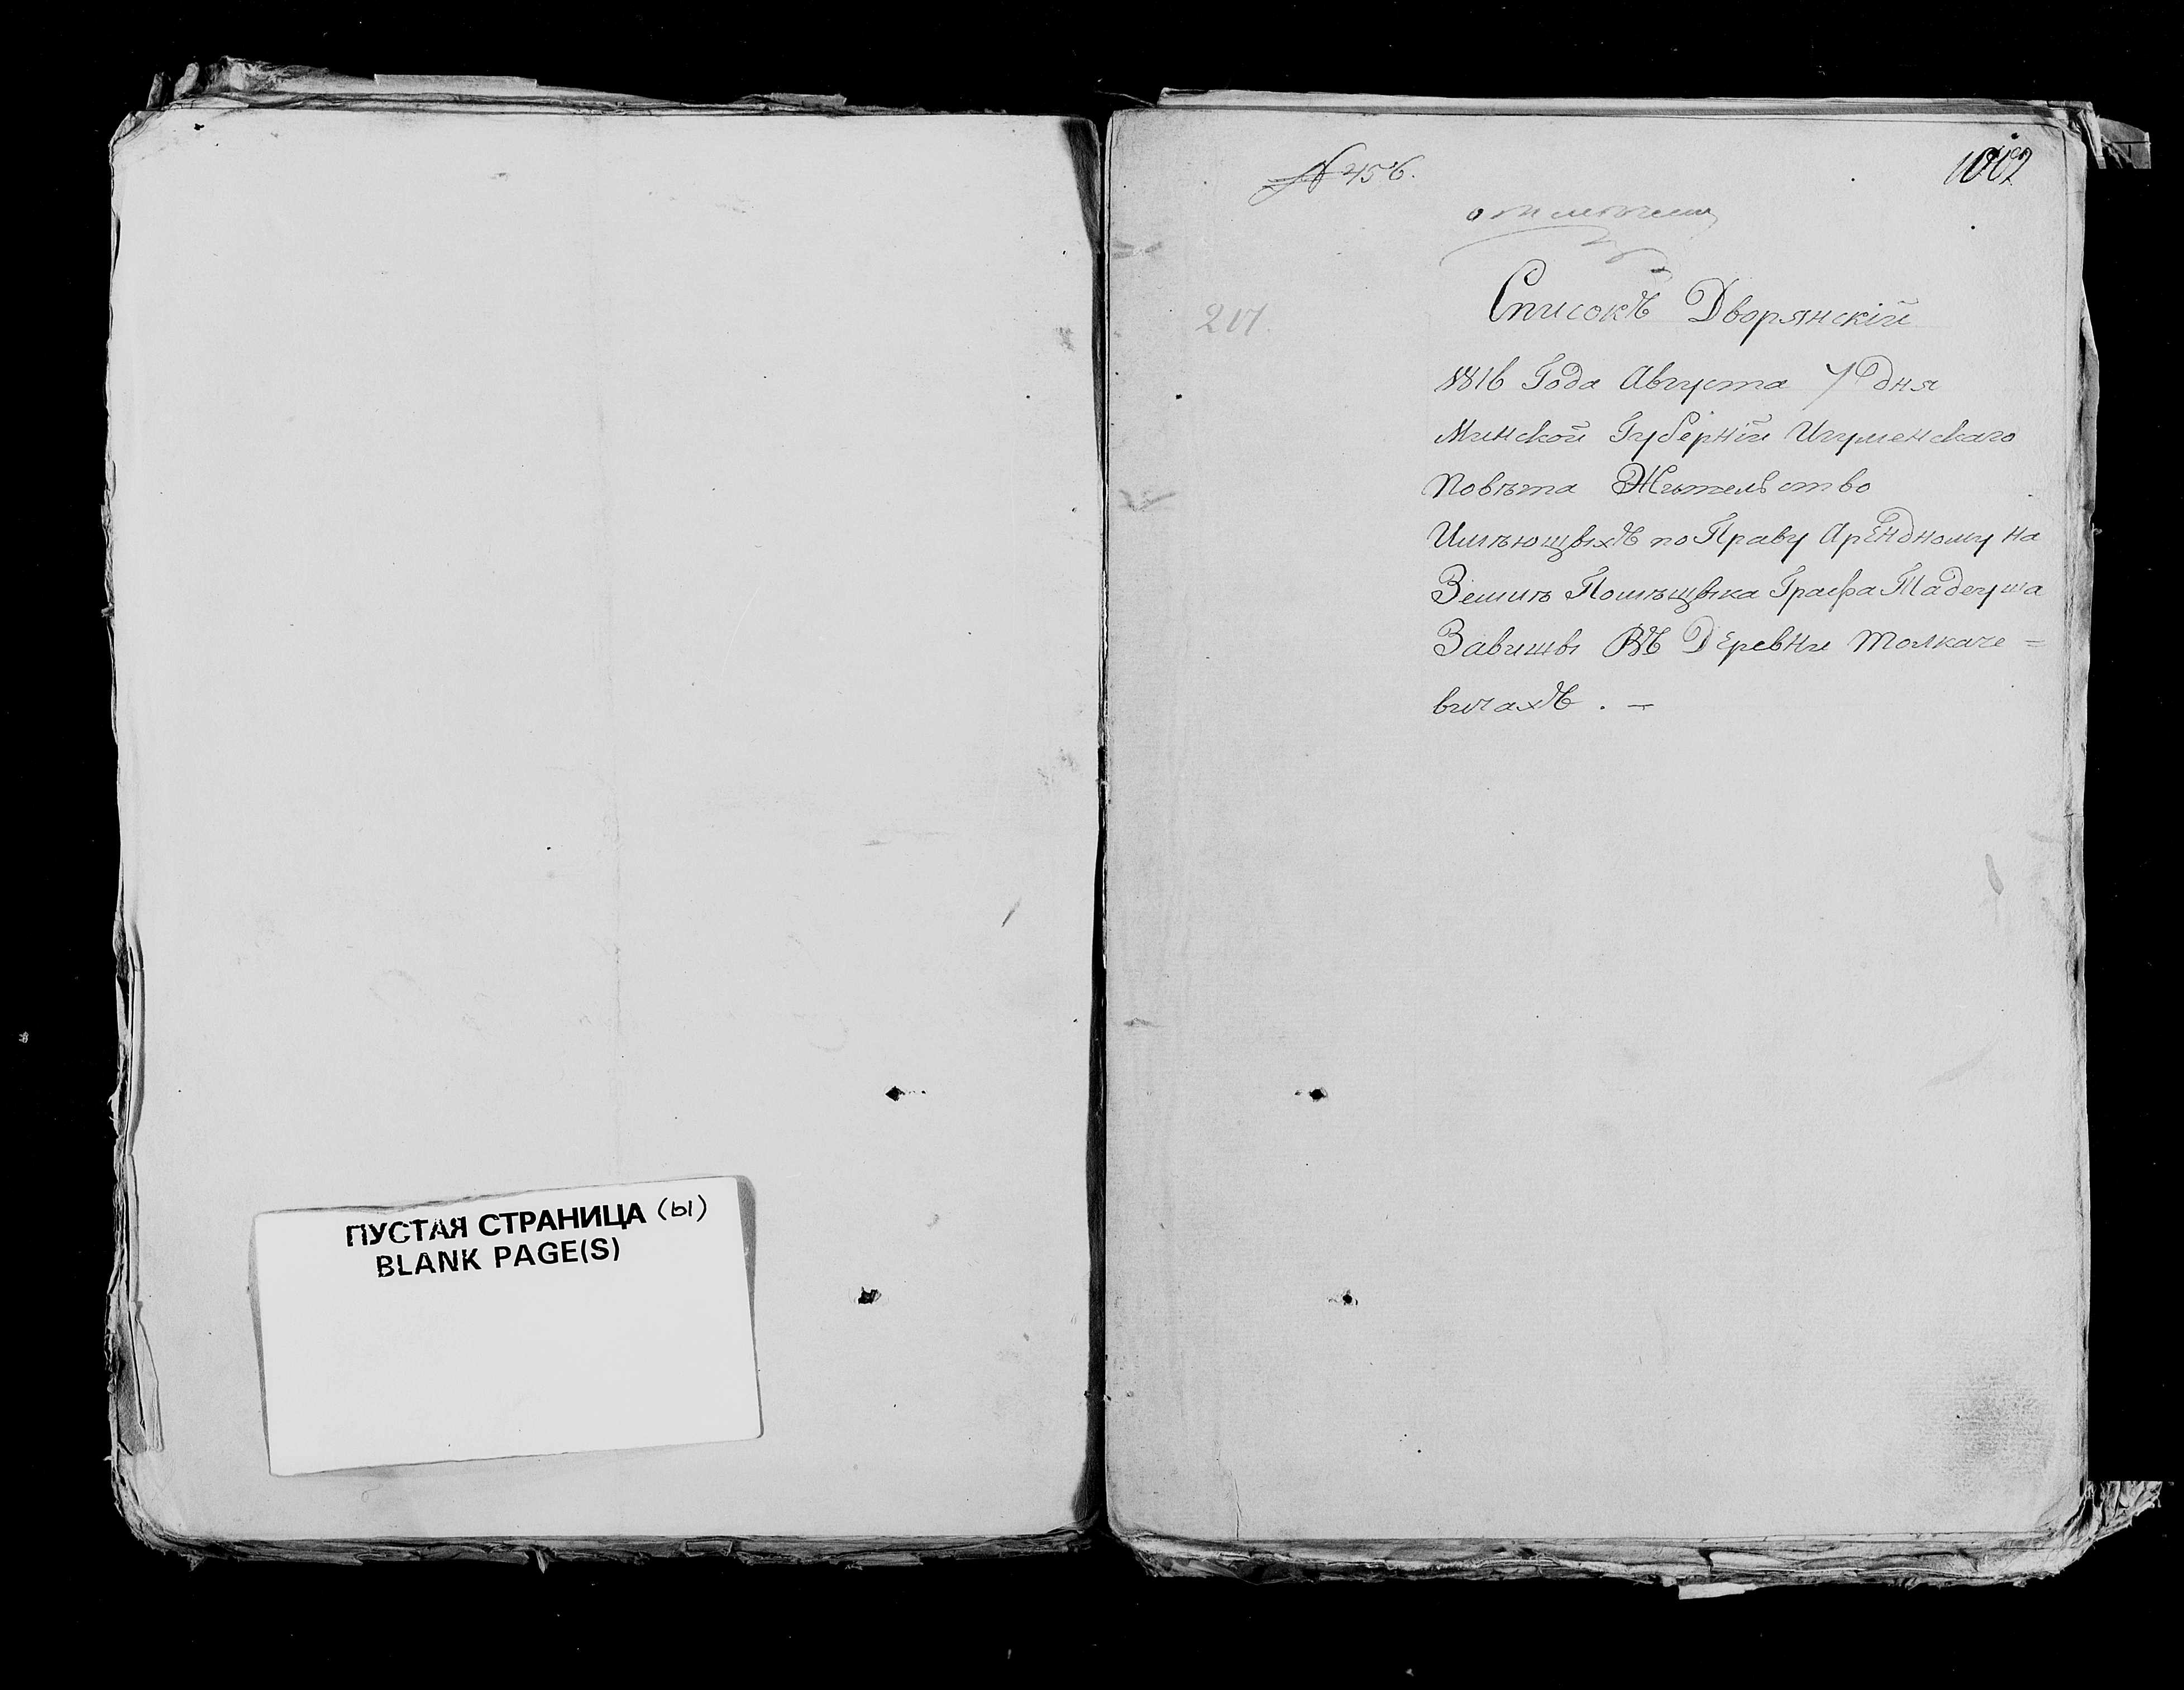 ПУСТАЯ СТРАНИЦА (ы)
BLANK PAGE(S)
№ 456.
217.
Списокъ Дворянскій
1816 Года Августа 7 дня
Минской Губерніи Игуменскаго
Повѣта Жительство
Имѣющихъ по Праву Арендному на
Земли Помѣщика Графа Тадеуша
Завишы Въ Деревни Толкаче=
вичахъ. —